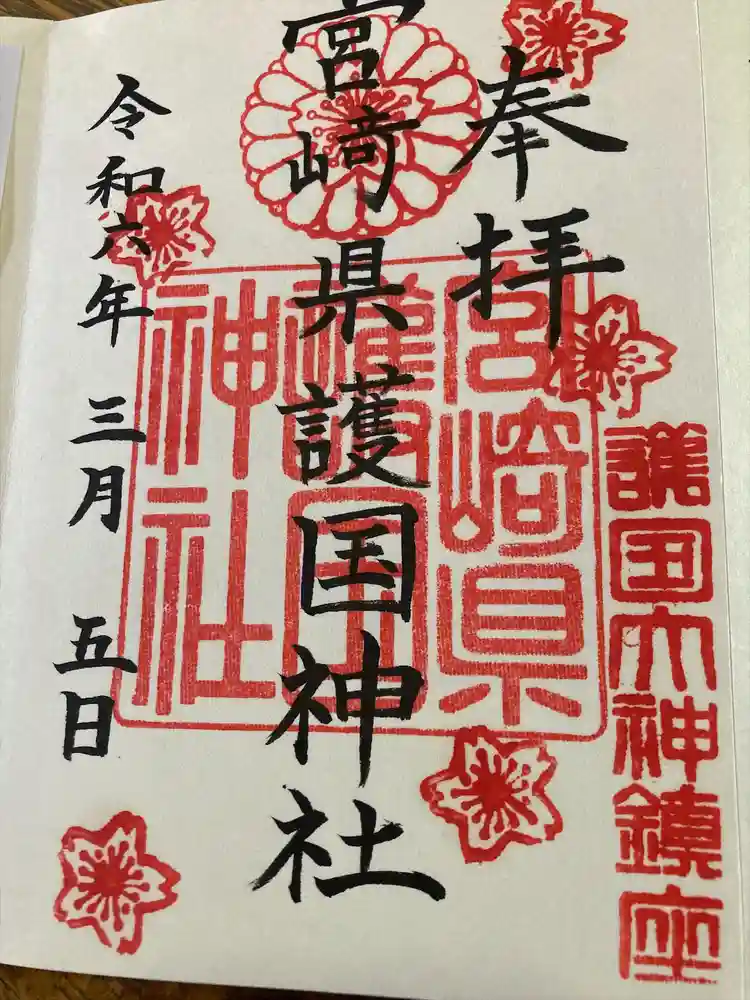 奉拝
宮﨑県護国神社
令和六年三月五日
宮﨑県
護国
神社
護国大神鎮座